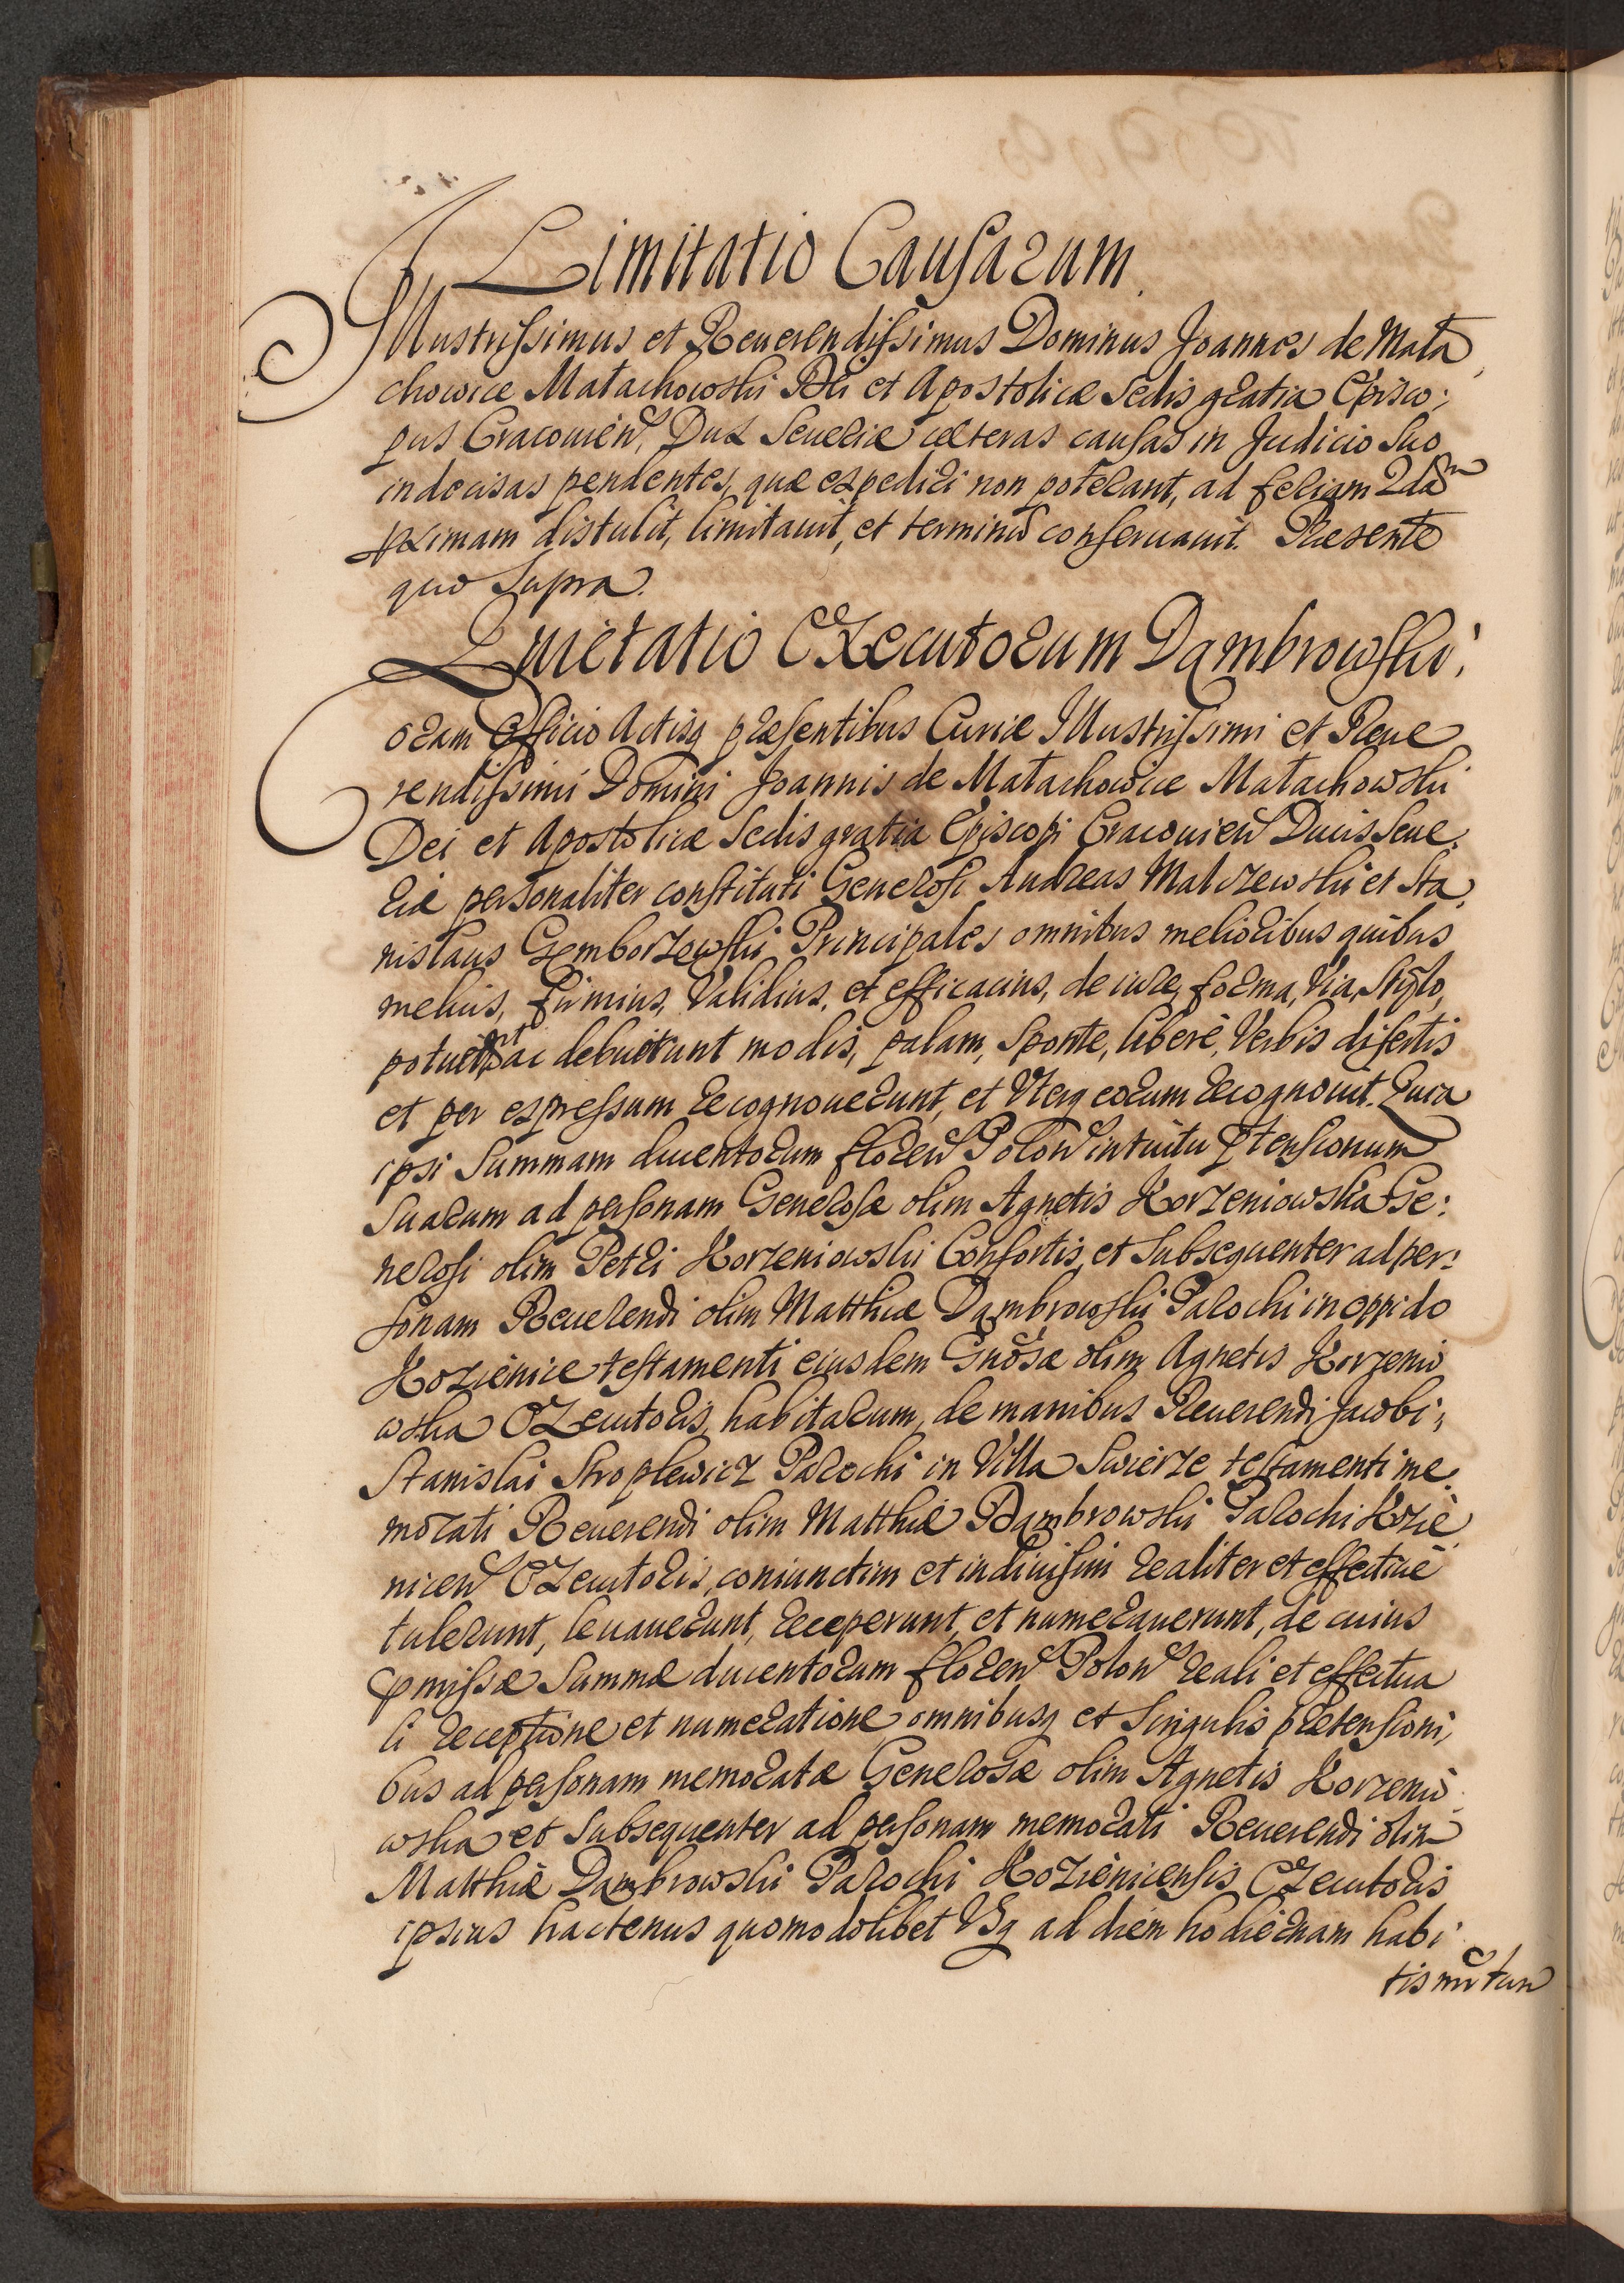 Limitatio Causarum.
Illustrissimus et Reuerendissimus Dominus Joannes de Mała,
chowice Małachowski Dei et Apostolicæ Sedis gratia Episco;
pus Cracouien̄, Dux Seueriæ cæteras causas in Judicio Suo
indecisas pendentes, quæ expediri non poterant, ad feriam 2dam
pximam distulit, limitauit, et terminū conseruauit. Præsente
quo Supra.
Quietatio Executorum Dambrowski.
Coram Officio Actisq præsentibus Curiæ Illustrissimi et Reue
rendissimi Domini Joannis de Małachowice Małachowski
Dei et Apostolicæ Sedis gratia Episcopi Cracouien̄ Ducis Seue,
riæ personaliter constituti Generosi Andreas Malczewski et Sta,
nislaus Gemborzewski Principales omnibus melioribus quibus
melius, firmius, Validius, et efficacius, de iure, forma, Via, Stylo,
potuernt ac debuerunt modis, palam, Sponte, liberè, Verbis disertis
et per expressum recognouerunt, et Vterq eorum recognouit. Quia
ipsi Summam ducentorum floren̄ Polon̄ intuitu ptensionum
Suarum ad personam Generosæ olim Agnetis Korzeniowska Ge:
nerosi olim Petri Korzeniowski Consortis, et Subsequenter ad per:
sonam Reuerendi olim Matthiæ Dambrowski Parochi in oppido
Kozienice testamenti eiusdem Gnosæ olim Agnetis Korzenio
wska Executoris, habitarum, de manibus Reuerendi Jacobi,
Stanislai Skroplewicz Parochi in Villa Swierze testamenti me,
morati Reuerendi olim Matthiæ Dambrowski Parochi Kozie
nicen̄ Executoris, coniunctim et indiuisim realiter et effectiuè
tulerunt, leuauerunt, receperunt, et numerauerunt, de cuius
pmissæ Summæ ducentorum floren̄ Polon̄ reali et effectua
li receptione et numeratione, omnibusq et Singulis prætensioni,
bus ad personam memoratæ Generosæ olim Agnetis Korzenio
wska et Subsequenter ad personam memorati Reuerendi olim
Matthiæ Dambrowski Parochi Kozienicensis Executoris
ipsius hactenus quomodolibet Vsq ad diem hodiernam habi